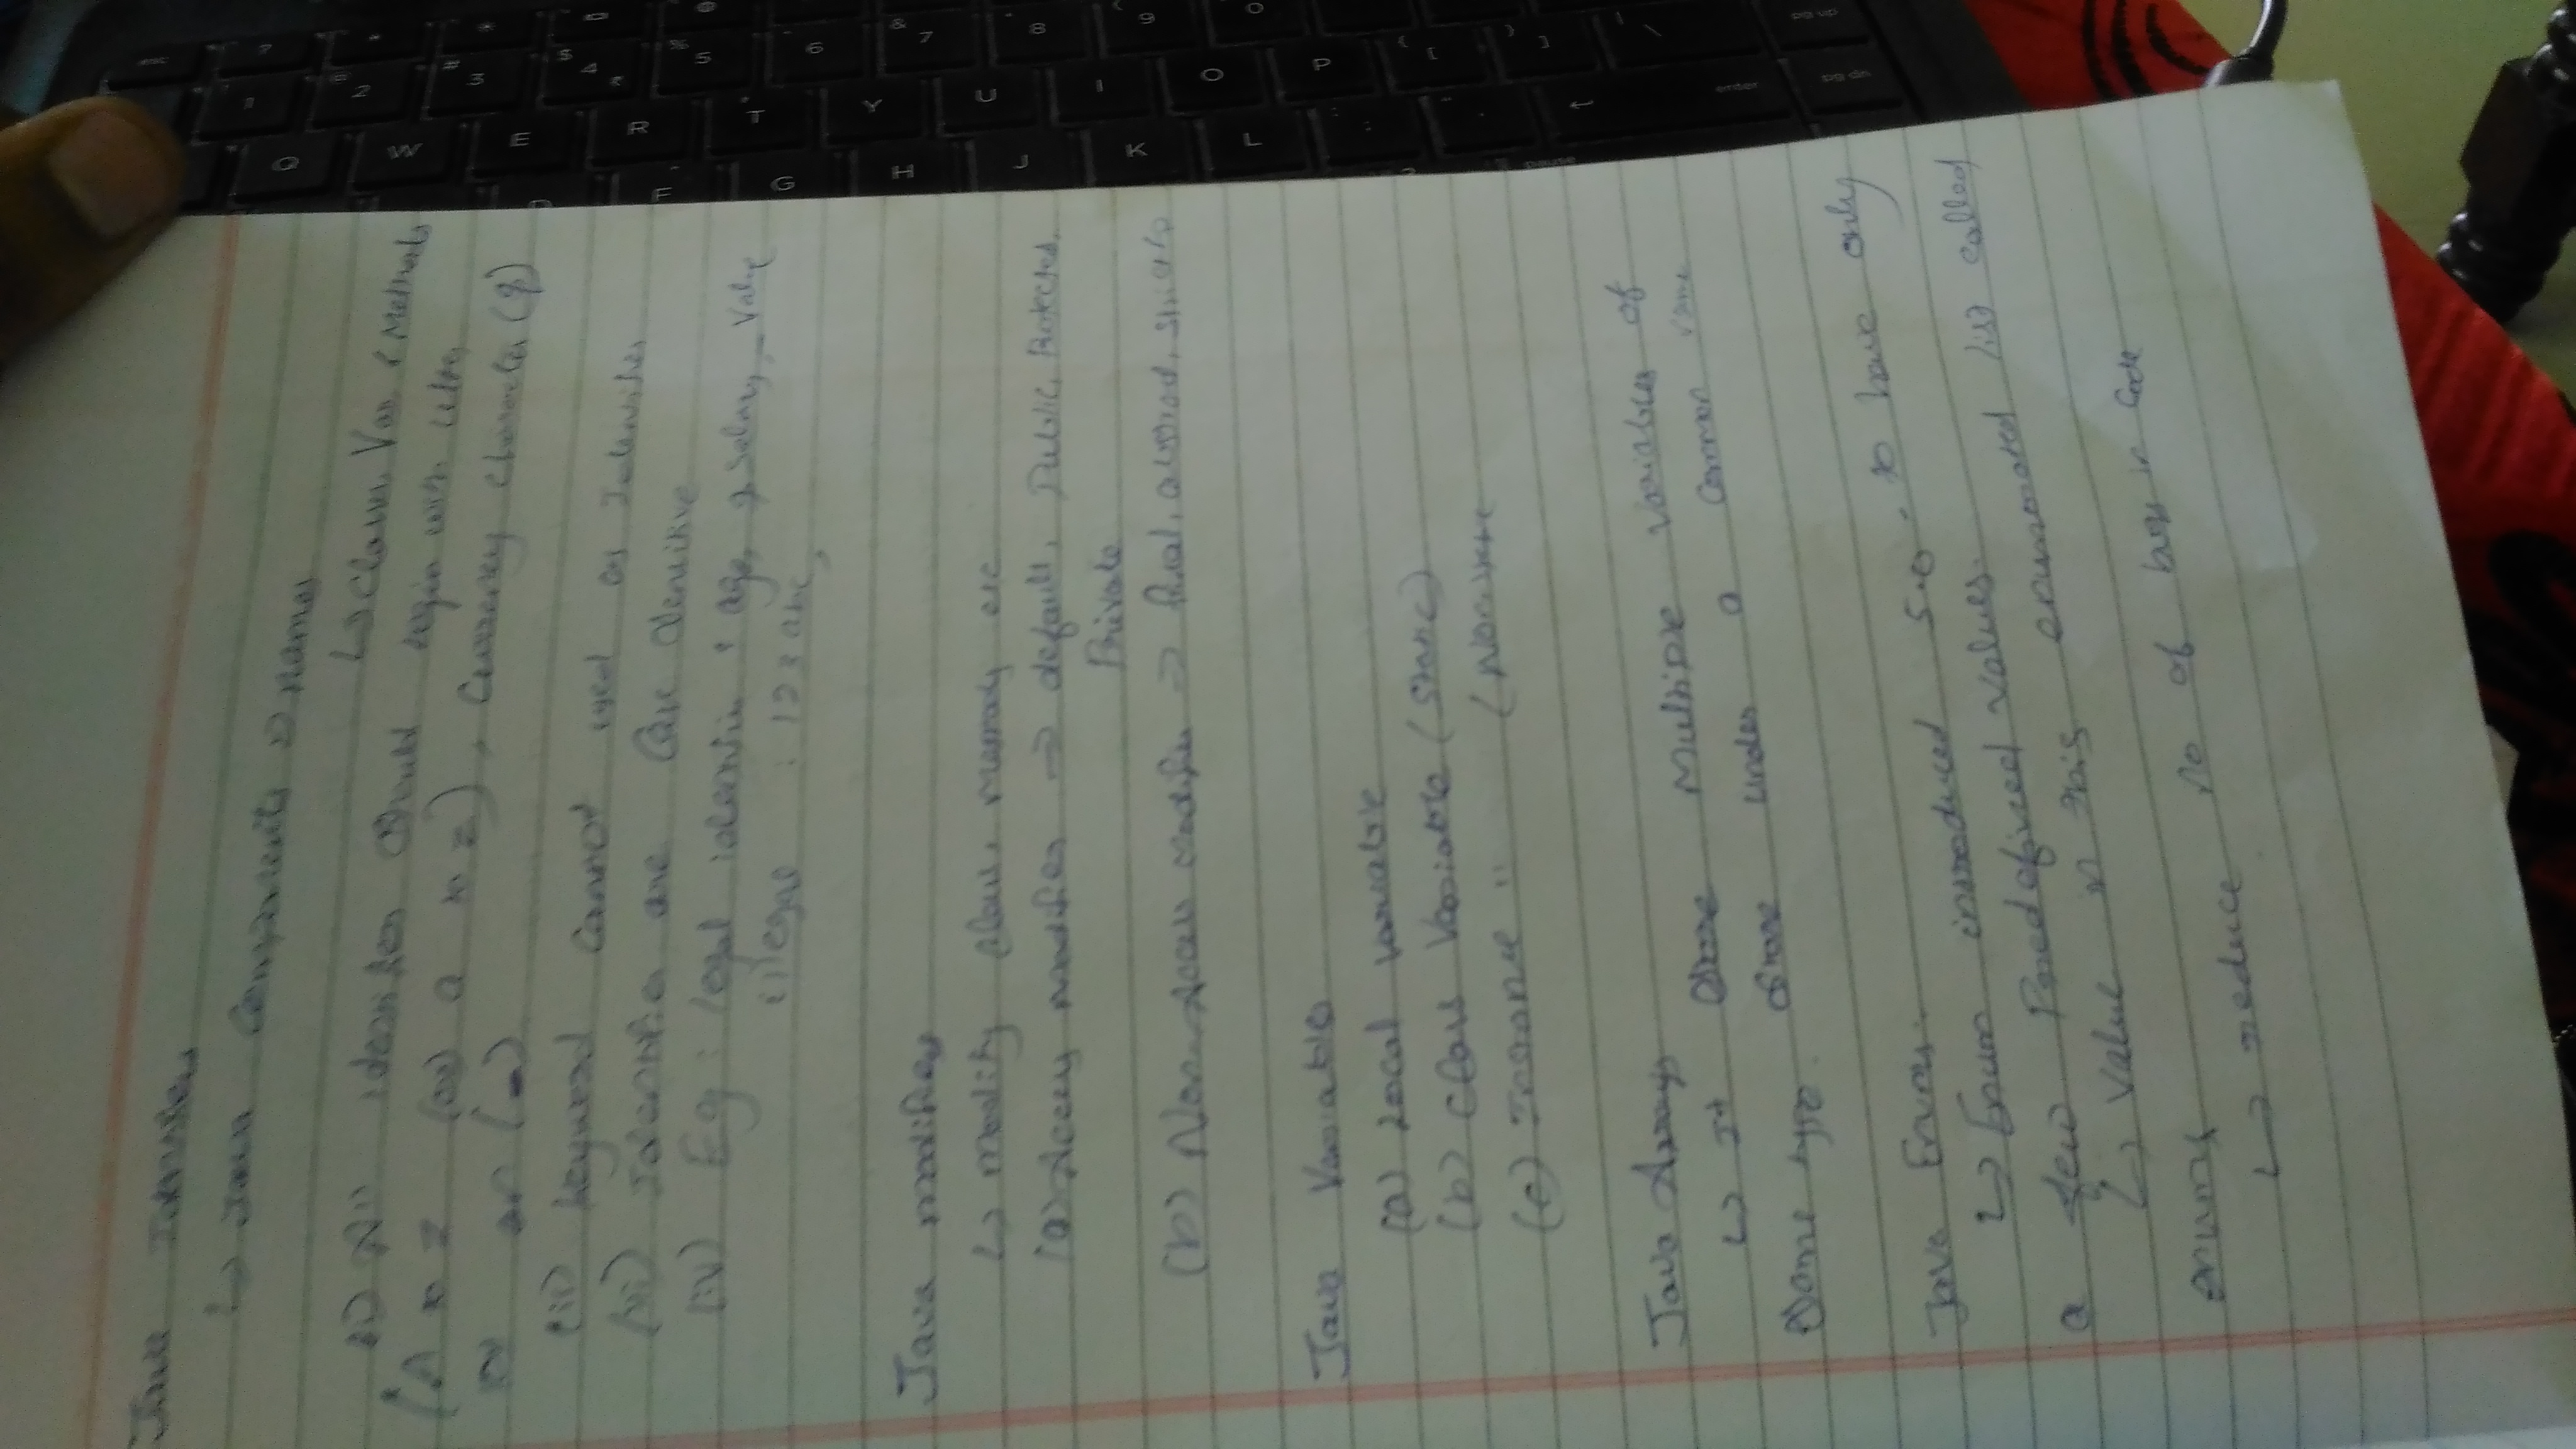 Java Identifiers
↳ Java Components ⇒ names
↳ Class, Var, & Methods
(i) All identifiers should begin with letter
(A to Z (or) a to z), Currency character ($)
or (_)
(ii) keyword cannot used as Identifier
(iii) Identifier are Case Sensitive
(iv) Eg : legal identifier : age, $ salary, _ value
illegal : 123 abc,
Java modifiers
↳ modify class, etc
(a) Access modifier ⇒ default, Public, Protected,
Private
(b) Non-Access modifier ⇒ final, abstract, strictfp
Java Variable
(a) Local variable
(b) class Variable (Static)
(c) Instance " (Non-static
Java Arrays
↳ It store Multiple variables of
Same type. store under a Common name
Java Enums.
↳ Enum introduced 5.0. to have only
a few Predefined values.
↳ Value in this enumerated list called
enums
↳ reduce no of bugs in Code